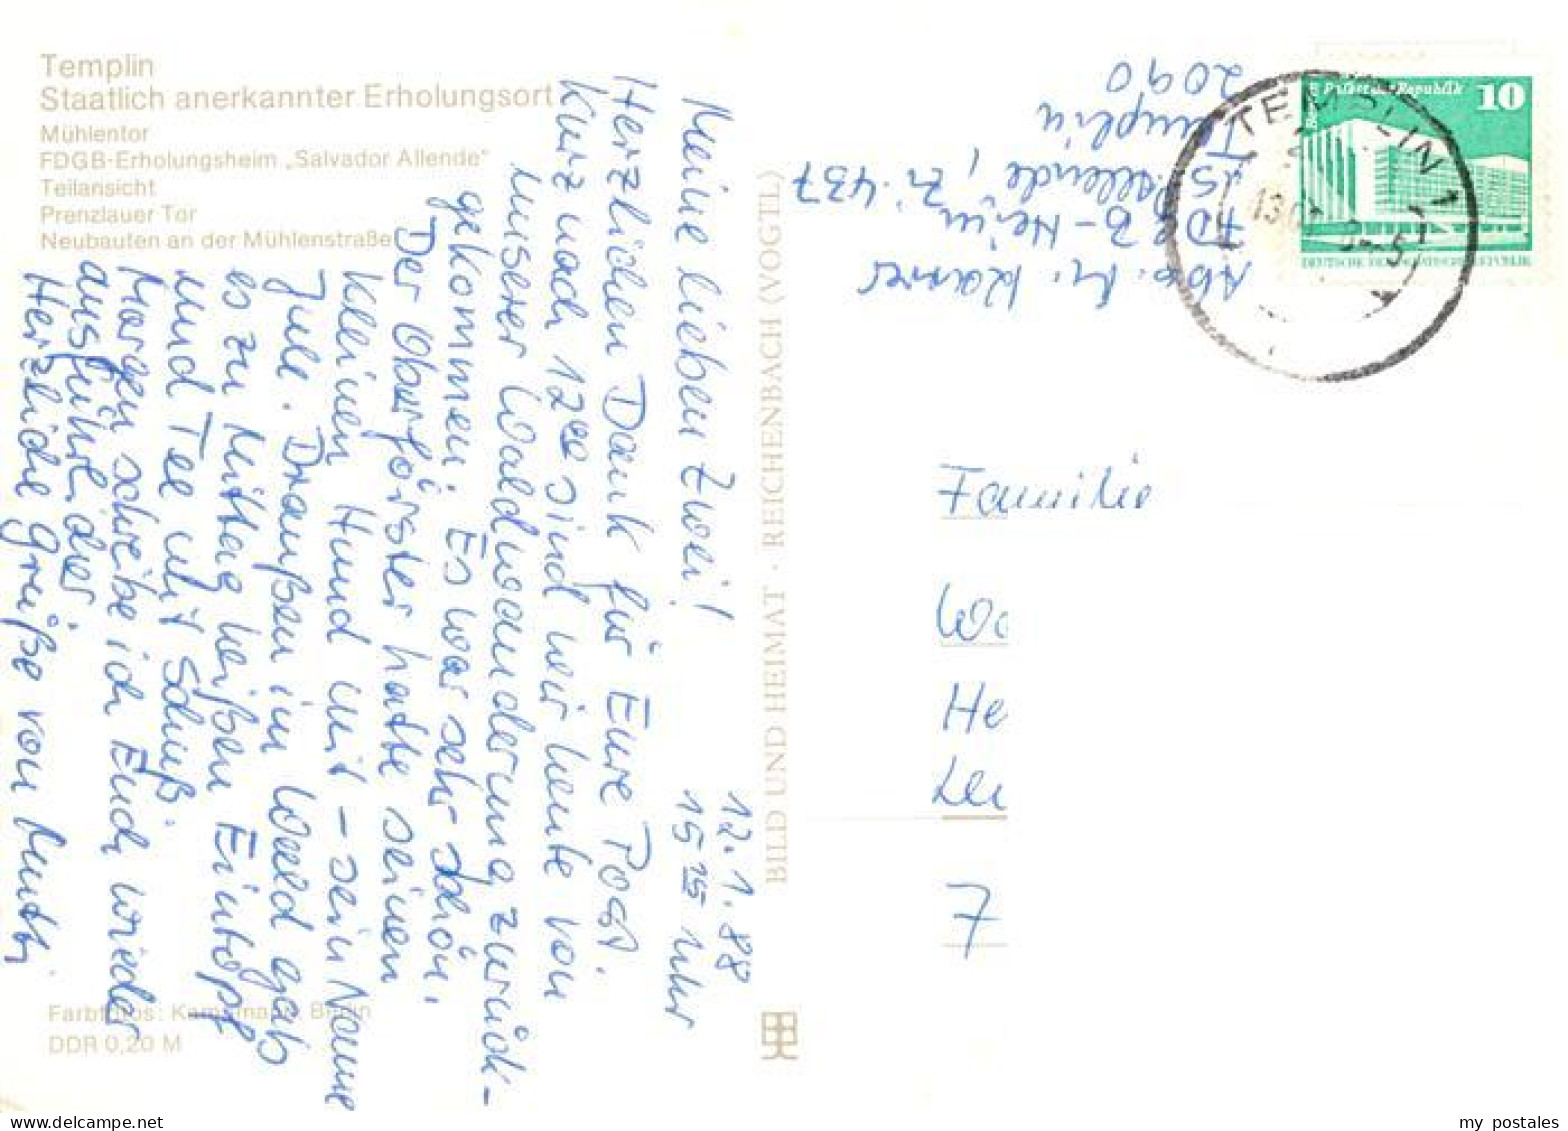 Templin
Staatlich anerkannter Erholungsort
Mühlentor
FDGB-Erholungsheim „Salvador Allende"
Teilansicht
Prenzlauer Tor
Neubauten an der Mühlenstraße
12.1.88
15 15 Uhr
Meine lieben Zwei!
Herzlichen Dank für Eure Post.
Kurz nach 12 00 sind wir heute von
unserer Waldwanderung zurück-
gekommen. Es war sehr schön.
Der Oberförster hatte seinen
kleinen Hund mit – sein Name
Jule. Draußen im Wald gab
es zu Mittag heißen Eintopf
und Tee mit Schuß.
Morgen schreibe ich Euch wieder
ausführlicher
Herzliche Grüße von Mutti
Farbfotos: Berlin
DDR 0,20 M
BILD UND HEIMAT · REICHENBACH (VOGTL)
Abs. M.
FDGB-Heim
"S. Allende", Zi. 437
Templin
2090
Palast der Republik 10
DEUTSCHE DEMOKRATISCHE REPUBLIK
TEMPLIN 1
Familie
Wo
He
7
my postales